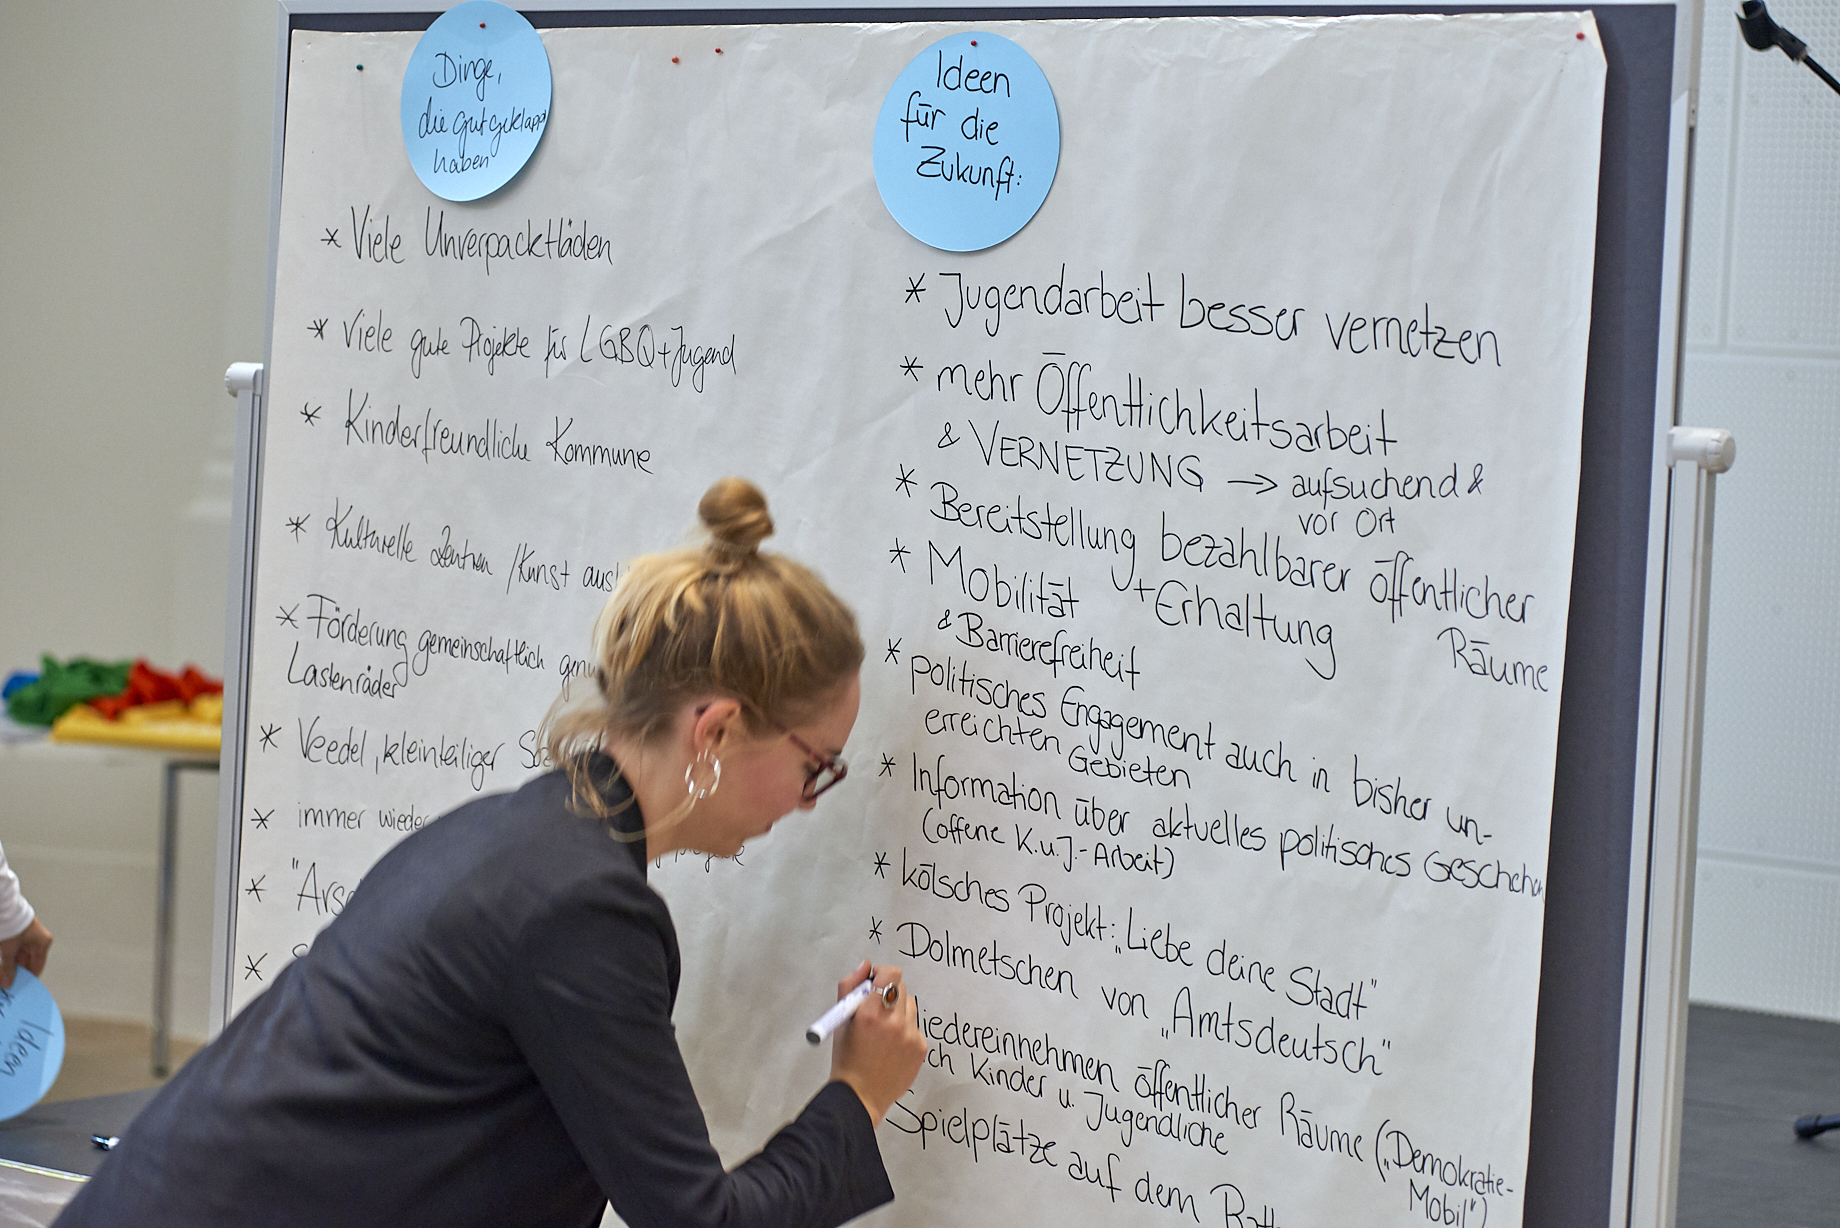 Dinge,
die gut geklappt
haben
* Viele Unverpacktläden
* Viele gute Projekte für LGBQ+Jugend
* Kinderfreundliche Kommune
* Kulturelle Zentren /Kunst
* Förderung gemeinschaftlich
Lastenräder
* Veedel, kleinteiliger
* immer wieder
*
*
Ideen
für die
Zukunft:
* Jugendarbeit besser vernetzen
* mehr Öffentlichkeitsarbeit
& VERNETZUNG → aufsuchend &
vor Ort
* Bereitstellung bezahlbarer öffentlicher
+Erhaltung Räume
* Mobilität
& Barrierefreiheit
* politisches Engagement auch in bisher un-
erreichten Gebieten
* Information über aktuelles politisches Geschehen
(offene K.u.J.-Arbeit)
* kölsches Projekt: „Liebe deine Stadt"
* Dolmetschen von „Amtsdeutsch"
öffentlicher Räume („Demokratie-
Kinder u. Jugendliche Mobil")
Spielplätze auf dem
Ideen